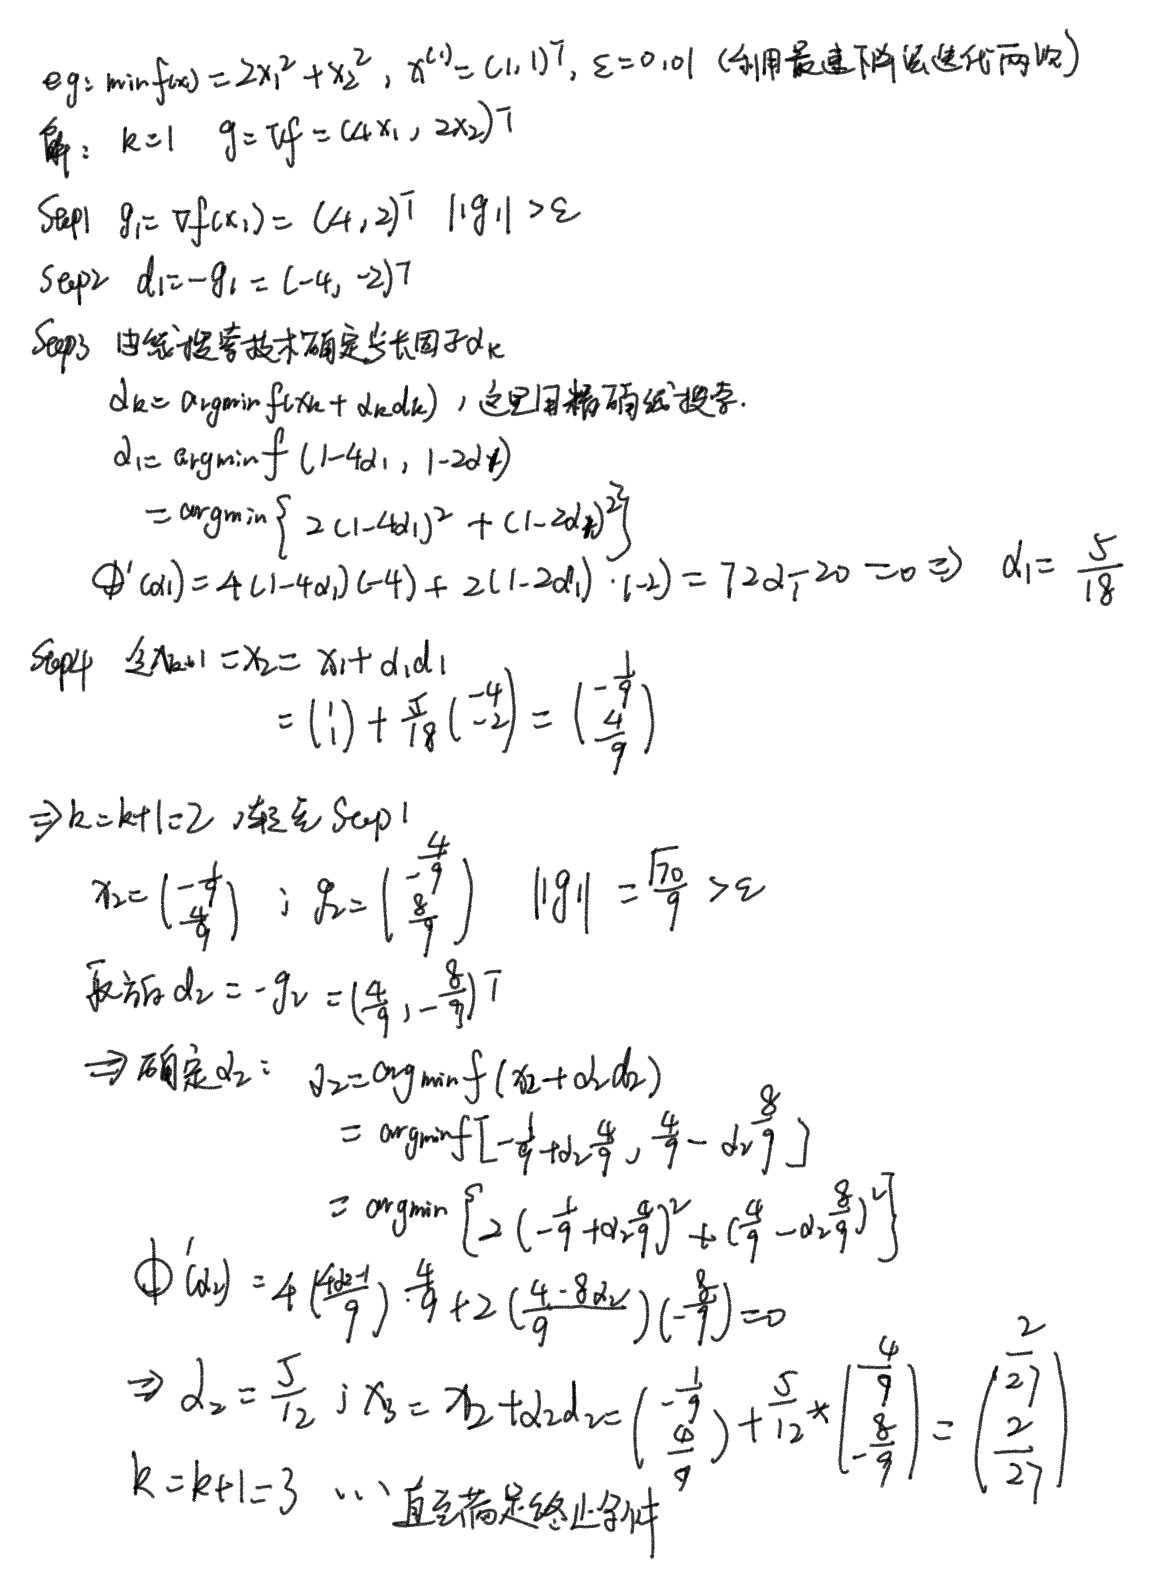 eg: min f(x) = 2x₁² + x₂², x⁽¹⁾ = (1, 1)ᵀ, ε = 0.01 (利用最速下降法迭代两次)
解: k=1 g = ∇f = (4x₁, 2x₂)ᵀ
Step1 g₁ = ∇f(x₁) = (4, 2)ᵀ ||g₁|| > ε
Step2 d₁ = -g₁ = (-4, -2)ᵀ
Step3 由线搜索技术确定步长因子αₖ
αₖ = argmin f(xₖ + αₖdₖ), 这里用精确线搜索.
α₁ = argmin f(1-4α₁, 1-2α₁)
= argmin{2(1-4α₁)² + (1-2α₁)²}
Φ'(α₁) = 4(1-4α₁)(-4) + 2(1-2α₁)·(-2) = 72α₁-20 = 0 ⇒ α₁ = 5/18
Step4 令xₖ₊₁ = x₂ = x₁ + α₁d₁
= (1 1) + 5/18 (-4 -2) = (-1/9 4/9)
⇒ k = k+1 = 2, 转至 Step1
x₂ = (-1/9 4/9) ; g₂ = (-4/9 8/9) ||g₁|| = √70/9 > ε
取方向 d₂ = -g₂ = (4/9, -8/9)ᵀ
⇒ 确定α₂: α₂ = argmin f(x₂ + α₂d₂)
= argmin f[-1/9 + α₂ 4/9, 4/9 - α₂ 8/9]
= argmin{2(-1/9 + α₂ 4/9)² + (4/9 - α₂ 8/9)²}
Φ'(α₂) = 4((4α₂-1)/9)·4/9 + 2((4-8α₂)/9)(-8/9) = 0
⇒ α₂ = 5/12 ; x₃ = x₂ + α₂d₂ = (-1/9 4/9) + 5/12 * (4/9 -8/9) = (2/27 2/27)
k = k+1 = 3 ... 直至满足终止条件